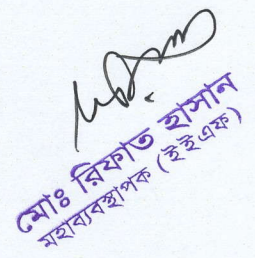 মোঃ রিফাত হাসান
মহাব্যবস্থাপক (ইইএফ)